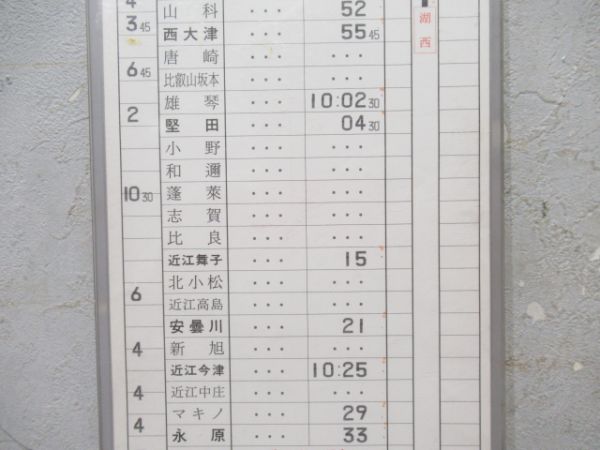 4
山科 52
3 45 西大津 ... 55 45 湖西
唐崎 ... ...
6 45 比叡山坂本 ... ...
雄琴 ... 10:02 30
2 堅田 ... 04 30
小野 ... ...
和邇 ... ...
10 30 蓬萊 ... ...
志賀 ... ...
比良 ... ...
近江舞子 ... 15
北小松 ... ...
6 近江高島 ... ...
安曇川 ... 21
4 新旭 ... ...
近江今津 ... 10:25
4 近江中庄 ... ...
マキノ ... 29
4 永原 ... 33